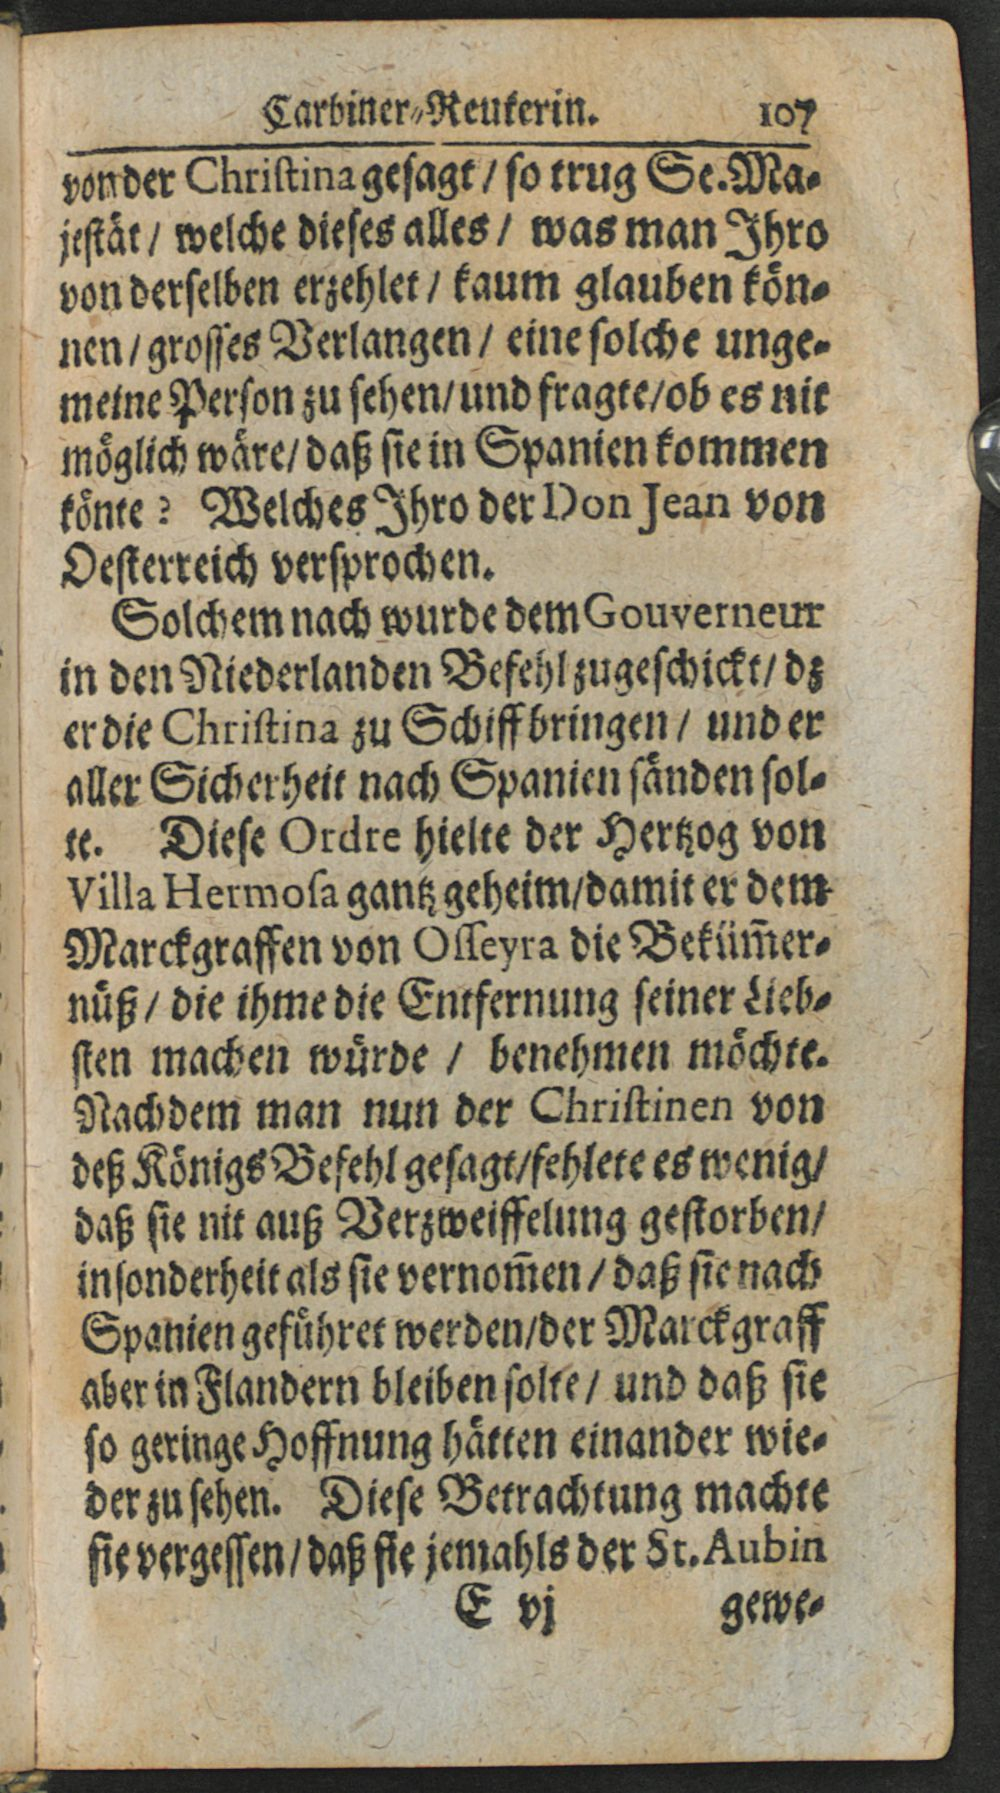 Carbiner-Reuterin. 107
von der Christina gesagt / so trug Se. Ma-
jestät / welche dieses alles / was man Jhro
von derselben erzehlet / kaum glauben kön-
nen / grosses Verlangen / eine solche unge-
meine Person zu sehen / und fragte / ob es nit
möglich wäre / daß sie in Spanien kommen
könte? Welches Jhro der Don Jean von
Oesterreich versprochen.
Solchem nach wurde dem Gouverneur
in den Niederlanden Befehl zugeschickt / dz
er die Christina zu Schiff bringen / und er
aller Sicherheit nach Spanien sänden sol-
te. Diese Ordre hielte der Hertzog von
Villa Hermosa gantz geheim / damit er dem
Marckgraffen von Osseyra die Beküm̃er-
nüß / die ihme die Entfernung seiner Lieb-
sten machen würde / benehmen möchte.
Nachdem man nun der Christinen von
deß Königs Befehl gesagt / fehlete es wenig /
daß sie nit auß Verzweiffelung gestorben /
insonderheit als sie vernom̃en / daß sie nach
Spanien geführet werden / der Marckgraff
aber in Flandern bleiben solte / und daß sie
so geringe Hoffnung hätten einander wie-
der zu sehen. Diese Betrachtung machte
sie vergessen / daß sie jemahls der St. Aubin
E vj gewe-